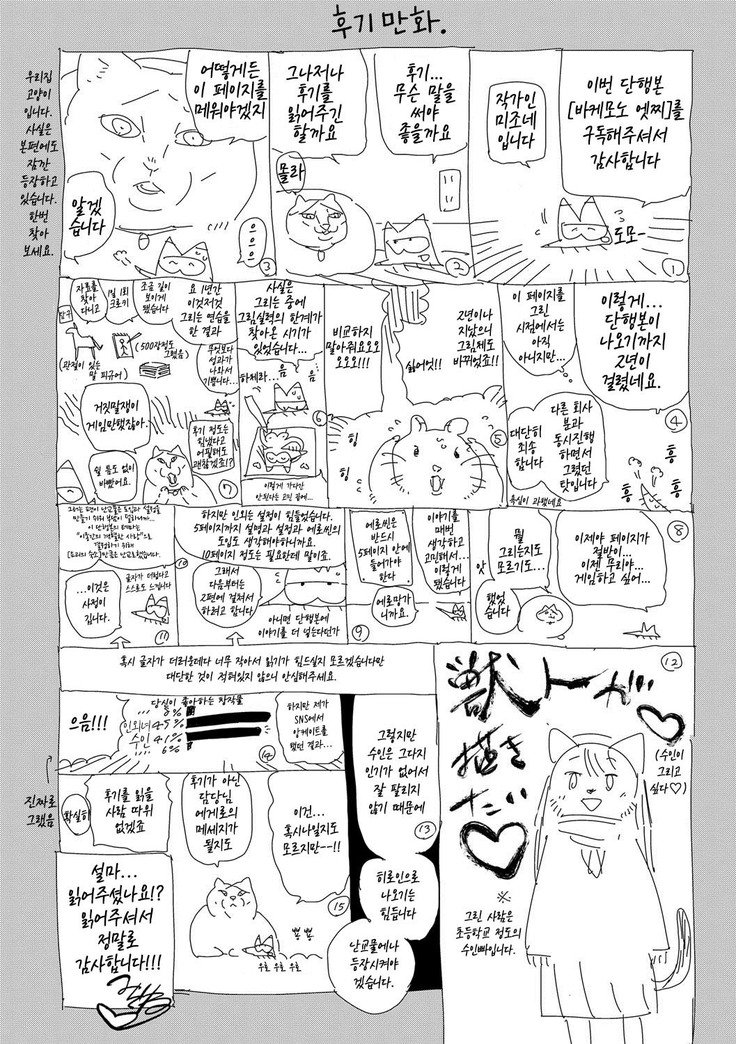 후기 만화.
우리집
고양이
입니다.
사실은
본편에도
잠깐
등장하고
있습니다.
한번
찾아
보세요.
이번 단행본
[바케모노 엣찌]를
구독해주셔서
감사합니다
작가인
미조네
입니다
도모-
①
후기...
무슨 말을
써야
좋을까요
그나저나
후기를
읽어주긴
할까요
몰라
②
어떻게든
이 페이지를
메워야겠지
알겠
습니다
으
으
으
③
이렇게...
단행본이
나오기까지
2년이
걸렸네요.
이 페이지를
그린
시점에서는
아직
아니지만...
④
다른 회사
분과
동시진행
하면서
그렸던
탓입니다
대단히
죄송
합니다
욕심이 과했네요
흥
흥
흥
2년이나
지났으니
그림체도
바뀌었죠!!
싫어엇!!
비교하지
말아줘요오오
오오오!!!
힝
힝
⑤
사실은
그리는 중에
그림실력의 한계가
찾아온 시기가
있었습니다...
하체라...
음
음
⑥
이렇게 가다간
안되라는 고민 끝에...
요 1년간
이것저것
그리는 연습을
한 결과
조금 길이
보이게
됐습니다
1일 1회
크로키
자료를
찾아
다니고
(500장정도
그렸음)
(관절이 있는
말 피규어)
무엇보다
성과가
나와서
기쁩니다...
거짓말쟁이
게임만했잖아.
쉴 틈도 없이
바빴어요.
후기 정도는
힘냈다고
어필해도
괜찮겠죠!?
⑦
⑧
이제야 페이지가
절반이...
이젠 무리야...
게임하고 싶어...
뭘
그리는지도
모르기도...
앗
했었
습니다
이야기를
매번
생각하고
고민해서...
이렇게
됐습니다
에로씬은
반드시
5페이지 안에
들어가야
한다
에로망가
니까요.
⑨
하지만 인외는 설정이 힘들었습니다.
5페이지까지 설명과 설정과 에로씬의
도입도 생각해야하니까요.
10페이지 정도는 필요한데 말이죠.
그래서
다음부터는
2편에 걸쳐서
하려고 합니다
아니면 단행본에
이야기를 더 넣는다던가
⑩
글자가 더럽다고
스스로도 느낍니다
...이것은
사정이
깁니다.
⑪
혹시 글자가 더러운데다 너무 작아서 읽기가 힘드실지 모르겠습니다만
대단한 것이 적혀있지 않으니 안심해주세요.
⑫
獣人が
描き
たい
(수인이
그리고
싶다♡)
※
그린 사람은
초등학교 정도의
수인빠입니다.
그렇지만
수인은 그다지
인기가 없어서
잘 팔리지
않기 때문에
⑬
히로인으로
나오기는
힘듭니다
난교물에나
등장시켜야
겠습니다.
하지만 제가
SNS에서
앙케이트를
했던 결과...
당신이 좋아하는 창작물
8%
인외녀 45%
수인 41%
6%
으음!!!
⑭
진짜로
그랬음
이건...
혹시나일지도
모르지만--!!
후기가 아닌
담당님
에게로의
메세지가
될지도
⑮
뽕
뽕
우로 우로 우로
후기를 읽을
사람 따위
없겠죠
확실히
설마...
읽어주셨나요!?
읽어주셔서
정말로
감사합니다!!!